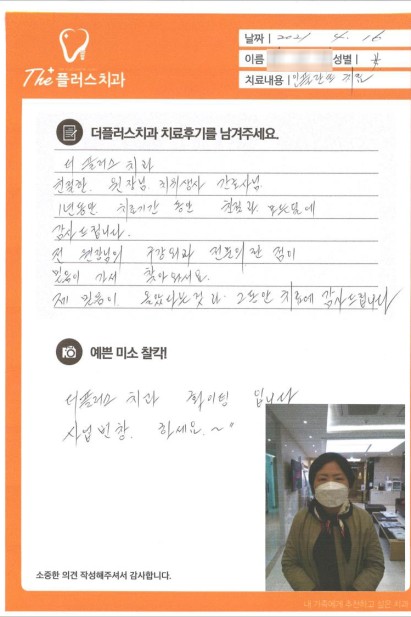 The+ 플러스치과
날짜 | 2021 4. 16
이름 성별 |
치료내용 | 임플란트 저림
더플러스치과 치료후기를 남겨주세요.
더 플러스 치과
친절한. 원장님. 치위생사 간호사님
1년동안. 치료기간 동안 친절과. 모든일에
감사드립니다.
전 원장님의 구강외과 전문의란 점이
믿음이 가서 찾아와서요.
제 믿음이 옳았다는것과. 그동안 치료에 감사드립니다
예쁜 미소 찰칵!
더플러스 치과 확이팅 입니다
사업번창. 하세요.~
소중한 의견 작성해주셔서 감사합니다.
내 가족에게 추천하고 싶은 치과